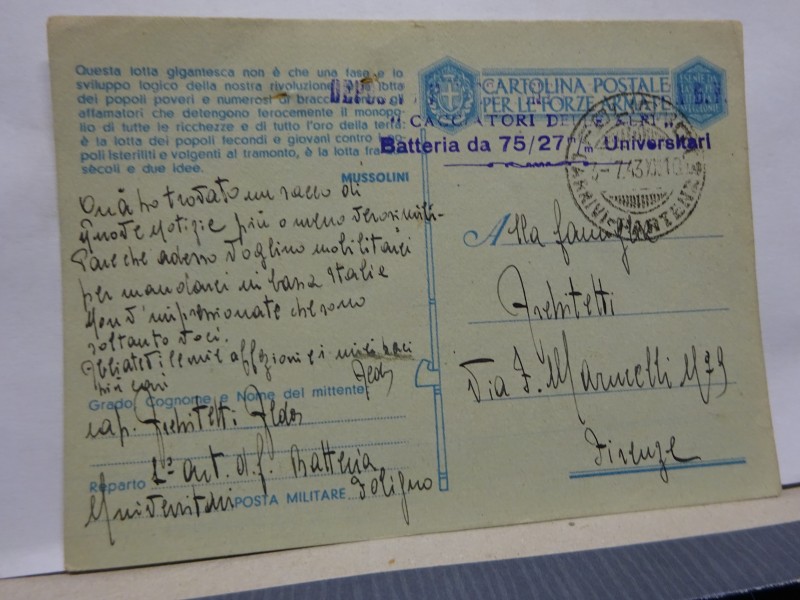 Questa lotta gigantesca non è che una fase e lo
sviluppo logico della nostra rivoluzione lotta
dei popoli poveri e numerosi di braccia
affamatori che detengono ferocemente il monopo-
lio di tutte le ricchezze e di tutto l'oro della terra:
è la lotta dei popoli fecondi e giovani contro i po-
poli isteriliti e volgenti al tramonto, è la lotta fra
secoli e due idee.
MUSSOLINI
Quà ho trovato un sacco di
nuove notizie più o meno verosimili-
Pare che adesso voglino mobilitarci
per mandarci in bassa Italia
Non v'impressionate che sono
soltanto voci.
Abbiatevi le mie affezioni e i miei baci
più cari
Aldo
Grado, Cognome e Nome del mittente
cap. Architetti Aldo
Reparto 1° art. d.f. Batteria
Universitari POSTA MILITARE Foligno
CARTOLINA POSTALE
PER LE FORZE ARMATE
"CACCIATORI DELLE
Batteria da 75/27 Universitari
Alla famiglia
Architetti
Via F. Marucelli N 9
Firenze